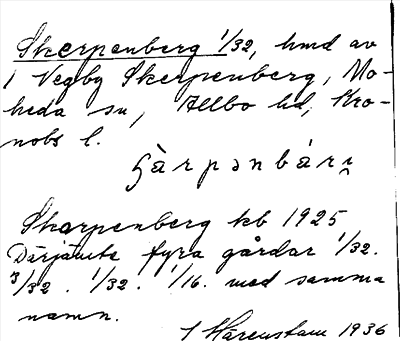 Skerpenberg 1/32, hmd av
1 Vegby Skerpenberg, Mo-
heda sn, Allbo hd, Kro-
nobs l.
Skarpenberg kb 1925
Därjämte fyra gårdar 1/32.
3/32. 1/32. 1/16. med samma
namn.
1936